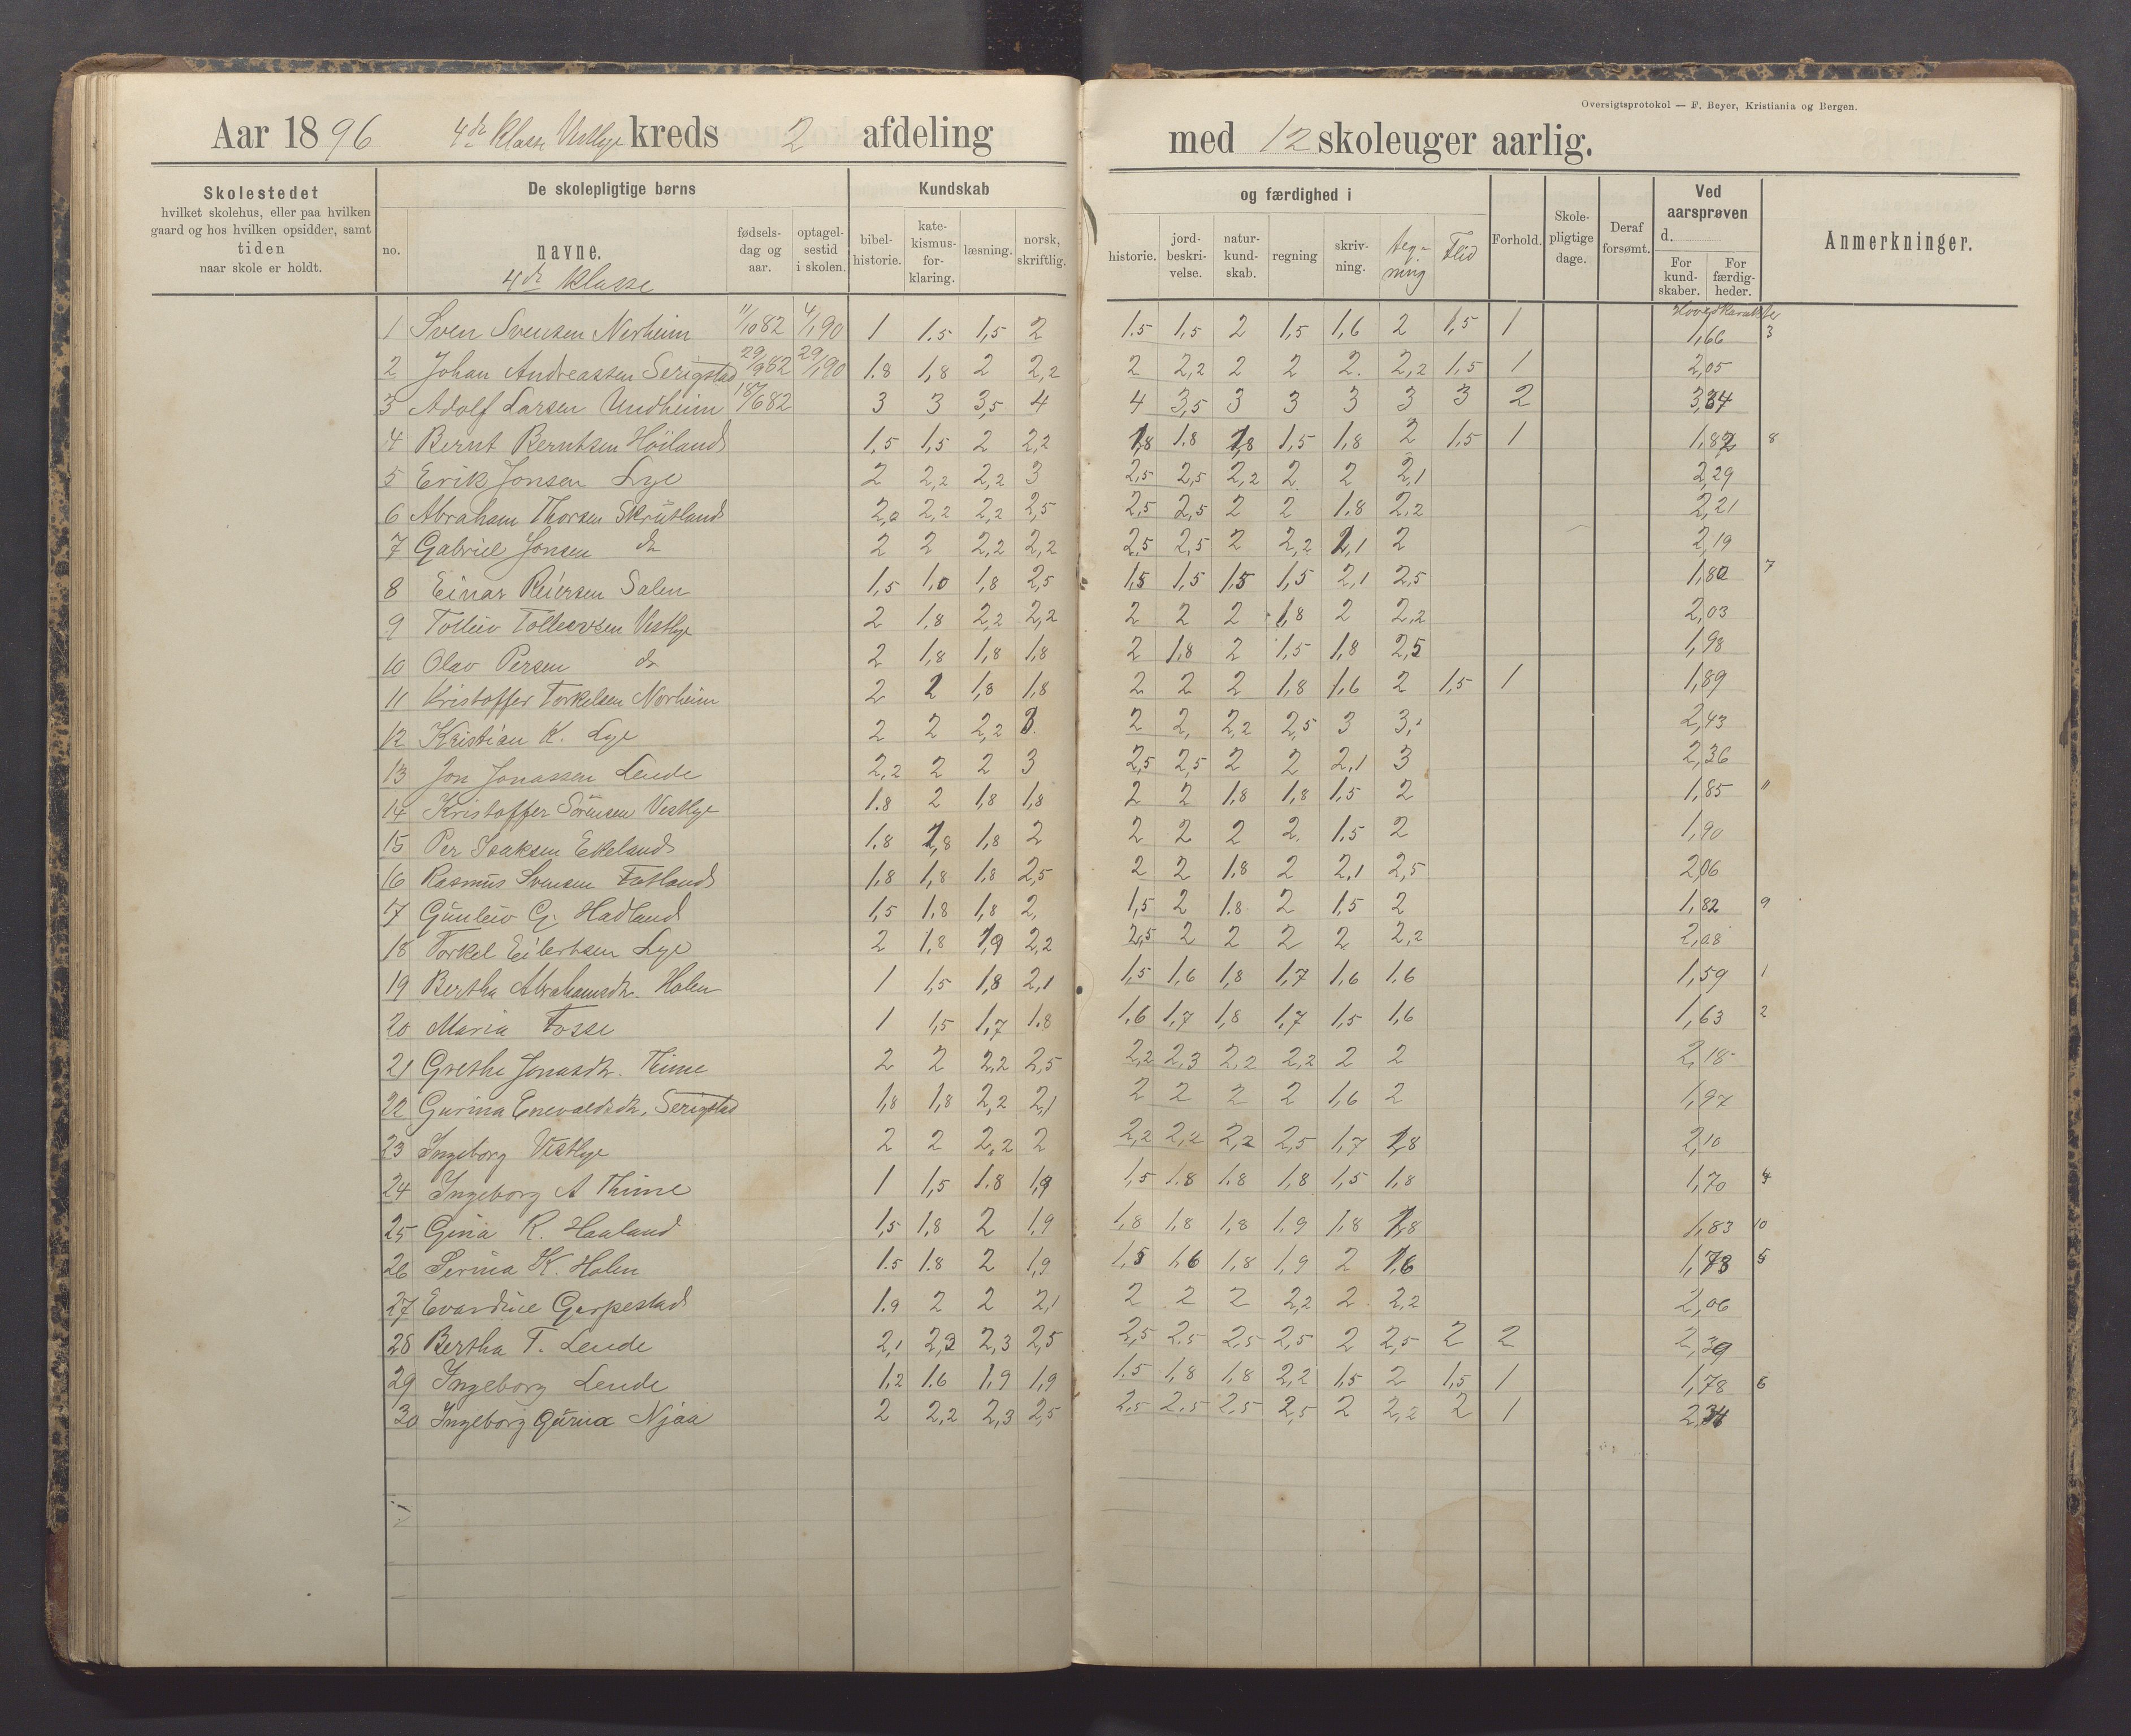 Oversigtsprotokol — F. Beyer, Kristiania og Bergen.
Aar 1896 4de klasse Vestlye kreds 2 afdeling med 12 skoleuger aarlig.
Skolestedet hvilket skolehus, eller paa hvilken gaard og hos hvilken opsidder, samt tiden naar skole er holdt.
De skolepligtige børns
no. navne. fødselsdag og aar. optagelsestid i skolen.
4de klasse
Kundskab og færdighed i
bibelhistorie. katekismusforklaring. læsning. norsk, skriftlig. historie. jordbeskrivelse. naturkundskab. regning skrivning. tegning Flid
Forhold. Skolepligtige dage. Deraf forsømt.
Ved aarsprøven d. For kundskaber. For færdigheder.
Anmerkninger.
Hovedkarakter
1 Sven Svensen Nerheim 11/10 82 4/1 90 1 1.5 1,5 2 1.5 1,5 2 1,5 1,6 2 1,5 1 1,66 3
2 Johan Andreassen Serigstad 29/9 82 29/1 90 1.8 1,8 2 2,2 2 2,2 2 2 2. 2,2 1,5 1 2,05
3 Adolf Larsen Undheim 18/6 82 3 3 3,5 4 4 3,5 3 3 3 3 3 2 3,34
4 Bernt Berntsen Höiland 1,5 1,5 2 2,2 1,8 1.8 1,8 1,5 1,8 2 1,5 1 1,82 8
5 Erik Jonsen Lye 2 2,2 2,2 3 2,5 2,5 2,2 2 2 2,1 2,29
6 Abraham Thorsen Skrutland 2,0 2,2 2,2 2,5 2,5 2,5 2 2 1.8 2,2 2,21
7 Gabriel Jonsen do 2 2 2,2 2,2 2,5 2,5 2 2,2 2,1 2 2,19
8 Einar Reiersen Salen 1,5 1,0 1,8 2,5 1,5 1,5 1,5 1,5 2,1 2,5 1,80 7
9 Tolleiv Tolleivsen Vestlye 2 1,8 2,2 2,2 2 2 2 1,8 2 2,2 2,03
10 Olav Persen do 2 1,8 1,8 1,8 2 1,8 2 1,5 1,8 2,5 1,98
11 Kristoffer Torkelsen Norheim 2 2 1,8 1,8 2 2 2 1,8 1,6 2 1,5 1 1,89
12 Kristian K. Lye 2 2 2,2 3. 2 2, 2,2 2,5 3 3,1 2,43
13 Jon Jonassen Lende 2,2 2 2 3 2,5 2,5 2 2 2,1 3 2,36
14 Kristoffer Sörensen Vestlye 1.8 2 1,8 1,8 2 2 1,8 1,8 1,5 2 1,85 11
15 Per Isaksen Ekeland 1.8 1,8 1,8 2 2 2 2 2. 1.5 2 1,90
16 Rasmus Svensen Fotland 1,8 1,8 1,8 2,5 2 2 1,8 2 2,1 2,5 2,06
17 Gunleiv G. Hadland 1,5 1,8 1,8 2, 1,5 2 1.8 2 1,5 2 1,82 9
18 Torkel Eilertsen Lye 2 1,8 1,9 2,2 2,5 2 2 2 2 2,2 2,08
19 Bertha Abrahamsdr. Holen 1 1,5 1,8 2,1 1,5 1,6 1,8 1,7 1,6 1.6 1,59 1
20 Maria Fosse 1 1,5 1,7 1.8 1.6 1,7 1,8 1,7 1,5 1,6 1,63 2
21 Grethe Jonasdr. Time 2 2 2,2 2,5 2,2 2,3 2,2 2,2 2 2 2,18
22 Gurina Enevaldsdr. Serigstad 1,8 1,8 2,2 2,1 2 2 2 2 1,6 2 1,97
23 Ingeborg Vestlye 2 2 2,2 2 2,2 2,2 2,2 2,5 1,7 1,8 2,10
24 Ingeborg A Thime 1 1,5 1.8 1,9 1,5 1.8 1.8 1,8 1,5 1,8 1,70 4
25 Gina R. Haaland 1,5 1,8 2 1,9 1,8 1,8 1,8 1,9 1,8 1,8 1,83 10
26 Serina K. Holen 1.5 1.8 2 1,9 1,5 1,6 1,8 1,9 2 1,6 1,78 5
27 Evardine Garpestad 1.9 2 2 2,1 2 2 2 2,2 2 2,2 2,06
28 Bertha T. Lende 2,1 2,2 2,3 2,5 2,5 2,5 2,5 2,5 2 2,5 2 2 2,39
29 Ingeborg Lende 1,2 1.6 1,9 1,9 1.5 1,8 1,8 2,2 1,5 2 1,5 1 1,78 6
30 Ingeborg Gurina Njaa 2 2,2 2,3 2,5 2,5 2,5 2,5 2,5 2 2,2 2 1 2,34